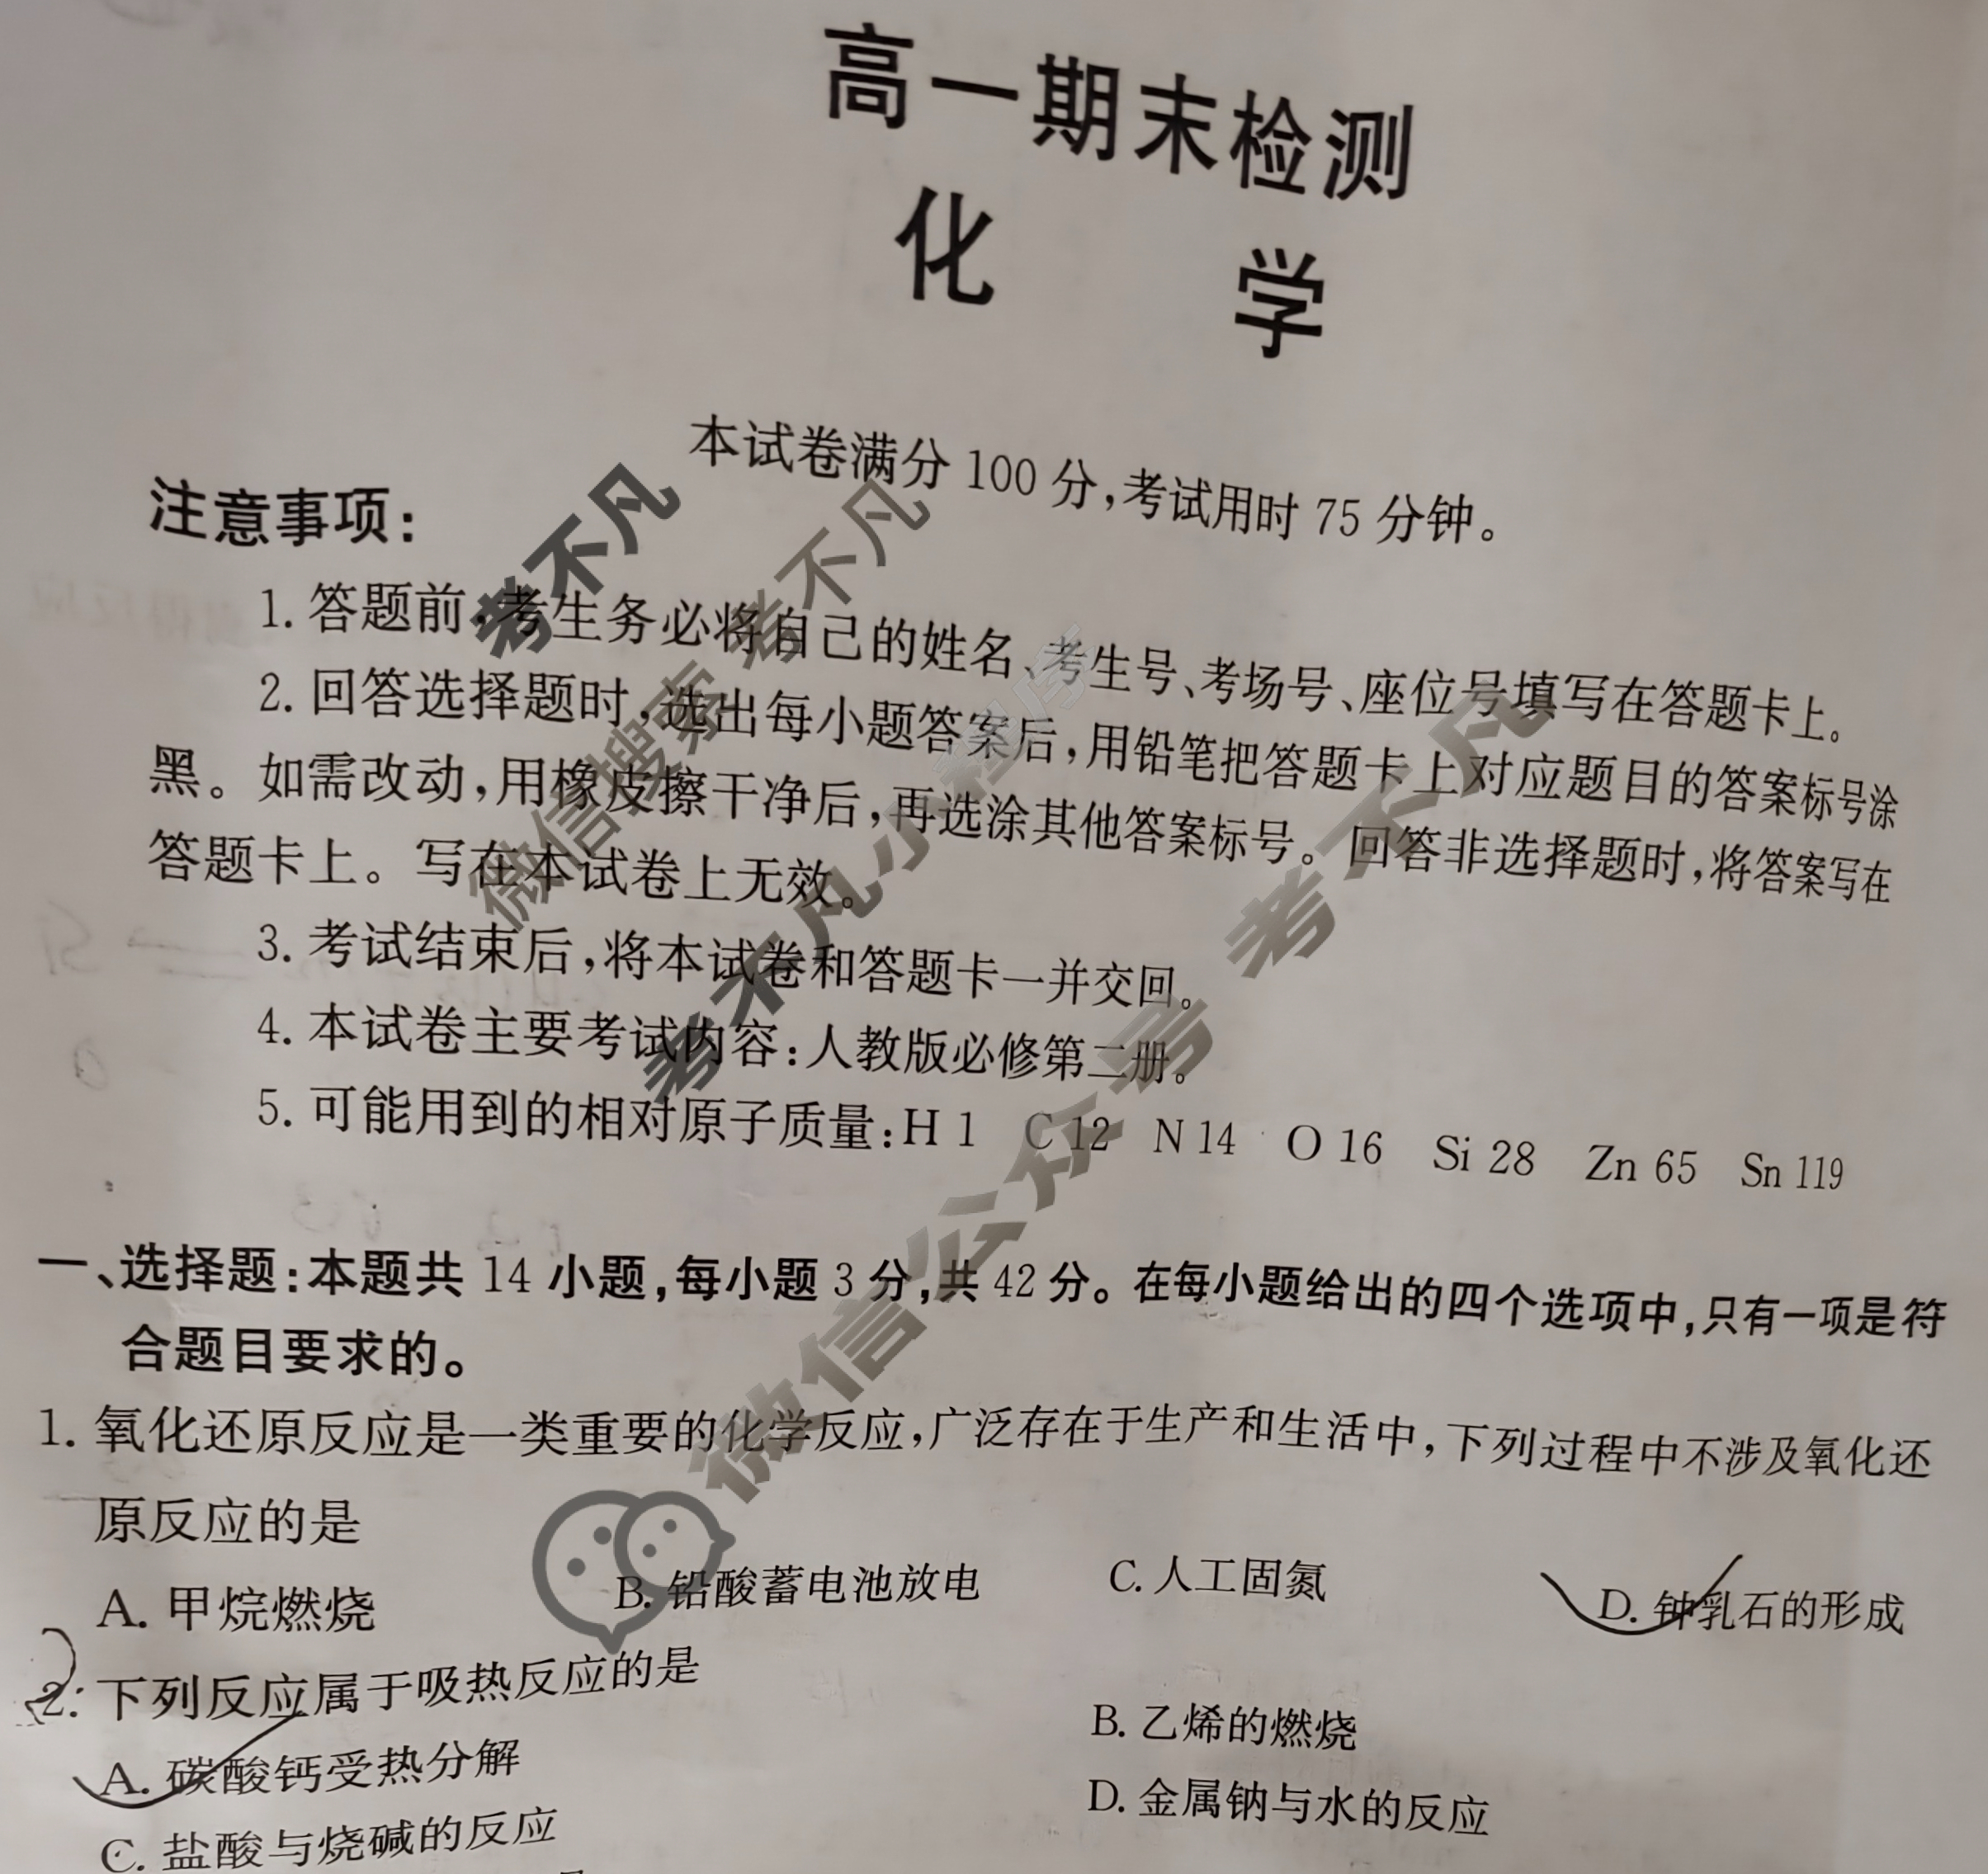 高一期末检测
化 学
本试卷满分 100 分,考试用时 75 分钟。
注意事项:
1. 答题前,考生务必将自己的姓名、考生号、考场号、座位号填写在答题卡上。
2. 回答选择题时,选出每小题答案后,用铅笔把答题卡上对应题目的答案标号涂
黑。如需改动,用橡皮擦干净后,再选涂其他答案标号。回答非选择题时,将答案写在
答题卡上。写在本试卷上无效。
3. 考试结束后,将本试卷和答题卡一并交回。
4. 本试卷主要考试内容:人教版必修第二册。
5. 可能用到的相对原子质量:H 1 C 12 N 14 O 16 Si 28 Zn 65 Sn 119
一、选择题:本题共 14 小题,每小题 3 分,共 42 分。在每小题给出的四个选项中,只有一项是符
合题目要求的。
1. 氧化还原反应是一类重要的化学反应,广泛存在于生产和生活中,下列过程中不涉及氧化还
原反应的是
A. 甲烷燃烧 B. 铅酸蓄电池放电 C. 人工固氮 D. 钟乳石的形成
2. 下列反应属于吸热反应的是
A. 碳酸钙受热分解 B. 乙烯的燃烧
C. 盐酸与烧碱的反应 D. 金属钠与水的反应
考不凡
微信搜索 考不凡
考不凡小程序
微信公众号 考不凡